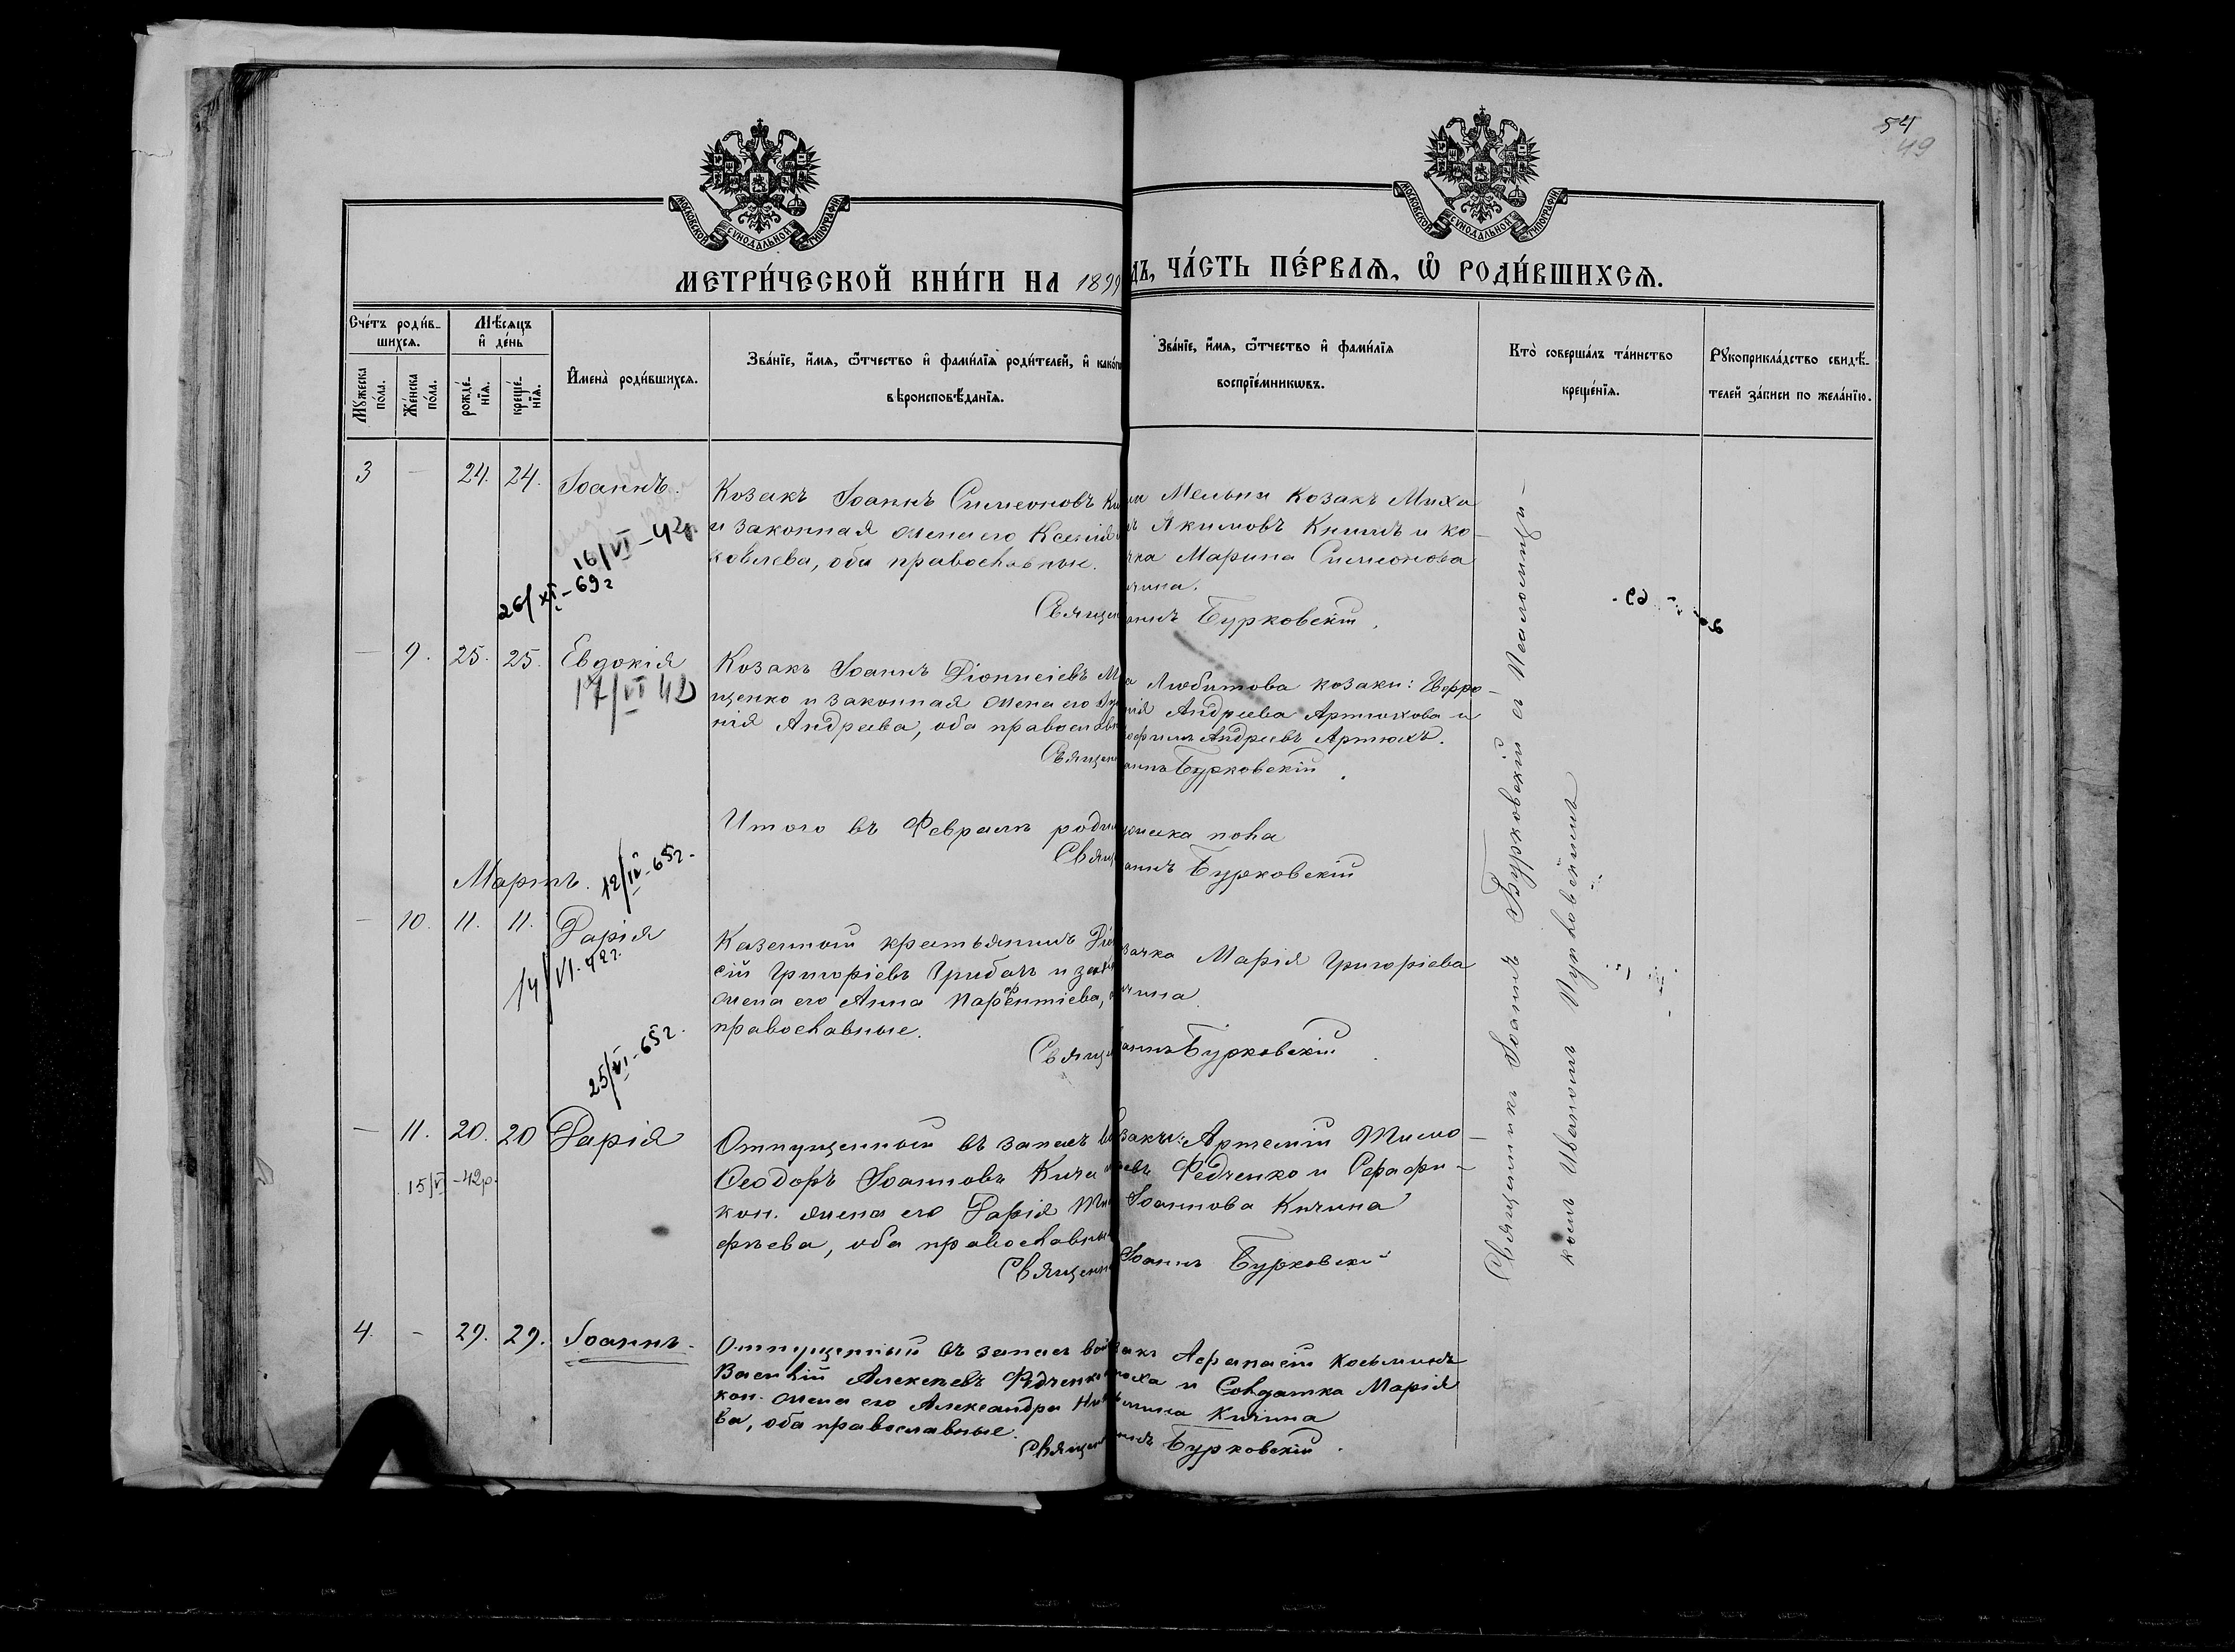 54
49
МОСКОВСКОЙ СѴНОДАЛЬНОЙ ТИПОГРАФІИ
МОСКОВСКОЙ СѴНОДАЛЬНОЙ ТИПОГРАФІИ
МЕТРИ́ЧЕСКОЙ КНИ́ГИ НА 1899
ДЪ, ЧА́СТЬ ПЕ́РВАѦ, Ѽ РОДИ́ВШИХСѦ.
Сче́тъ роди́в-
шихсѧ.
Мꙋ́жеска по́ла.
Же́нска по́ла.
Мѣ́сѧцъ
и҆ де́нь
рожде́-
нїѧ.
креще́-
нїѧ.
И҆мена̀ роди́вшихсѧ.
Зва́нїе, и҆́мѧ, ѻ҆́тчество и҆ фами́лїѧ роди́телей, и҆ како́г
вѣроисповѣ́данїѧ.
Зва́нїе, и҆́мѧ, ѻ҆́тчество и҆ фами́лїѧ
воспрїе́мникѡвъ.
Кто̀ соверша́лъ та́инство
креще́нїѧ.
Рꙋкоприкла́дство свидѣ́-
телей за́писи по жела́нїю.
3 — 24. 24. Іоаннъ.
16/VI-42г.
26/XI-69г
Козакъ Іоаннъ Симеоновъ
и законная жена его Ксенія
ковлева, оба православные.
Мельни Козакъ Миха
Акимовъ Книшъ и ко-
чка Марина Симеонова
чина.
Священ
аннъ Бурковскій.
— 9. 25. 25. Евдокія
17/VI 42
Козакъ Іоаннъ Діонисіевъ М
щенко и законная жена его
нія Андреева, оба православн
а Любитова козаки: Евфро-
нія Андреева Артюхова и
Андреевъ Артюхъ.
Священ
аннъ Бурковскій.
Итого въ Февралѣ роди
женска пола
Свящ
аннъ Бурковскій
Мартъ.
12/IV-65г.
— 10. 11. 11. Дарія
14/VI-42г.
25/VI-65г.
Казенный крестьянинъ Діо
сій Григоріевъ Грибачъ и зак
жена его Анна Парѳентіева,
православные.
зачка Марія Григоріева
чина
Свящ
аннъ Бурковскій.
— 11. 20. 20 Дарія
15/VI-42р.
Отпущенный въ запасъ
Ѳеодоръ Іоанновъ Кича
кон. жена его Дарія Тим
фѣева, оба православны
закъ: Артемій Тимо-
еевъ Федченко и Серафи-
Іоаннова Кичина
Священн
Іоаннъ Бурковскій
4. — 29. 29. Іоаннъ.
Отпущенный въ запасъ вой
Василій Алексѣевъ Федченко
кон. жена его Александра
ва, оба православные.
закъ Аѳанасій Косьминъ
и Солдатка Марія
Кичина
Священ
аннъ Бурковскій.
Священникъ Іоаннъ Бурковскій съ Псаломщи-
комъ Иваномъ